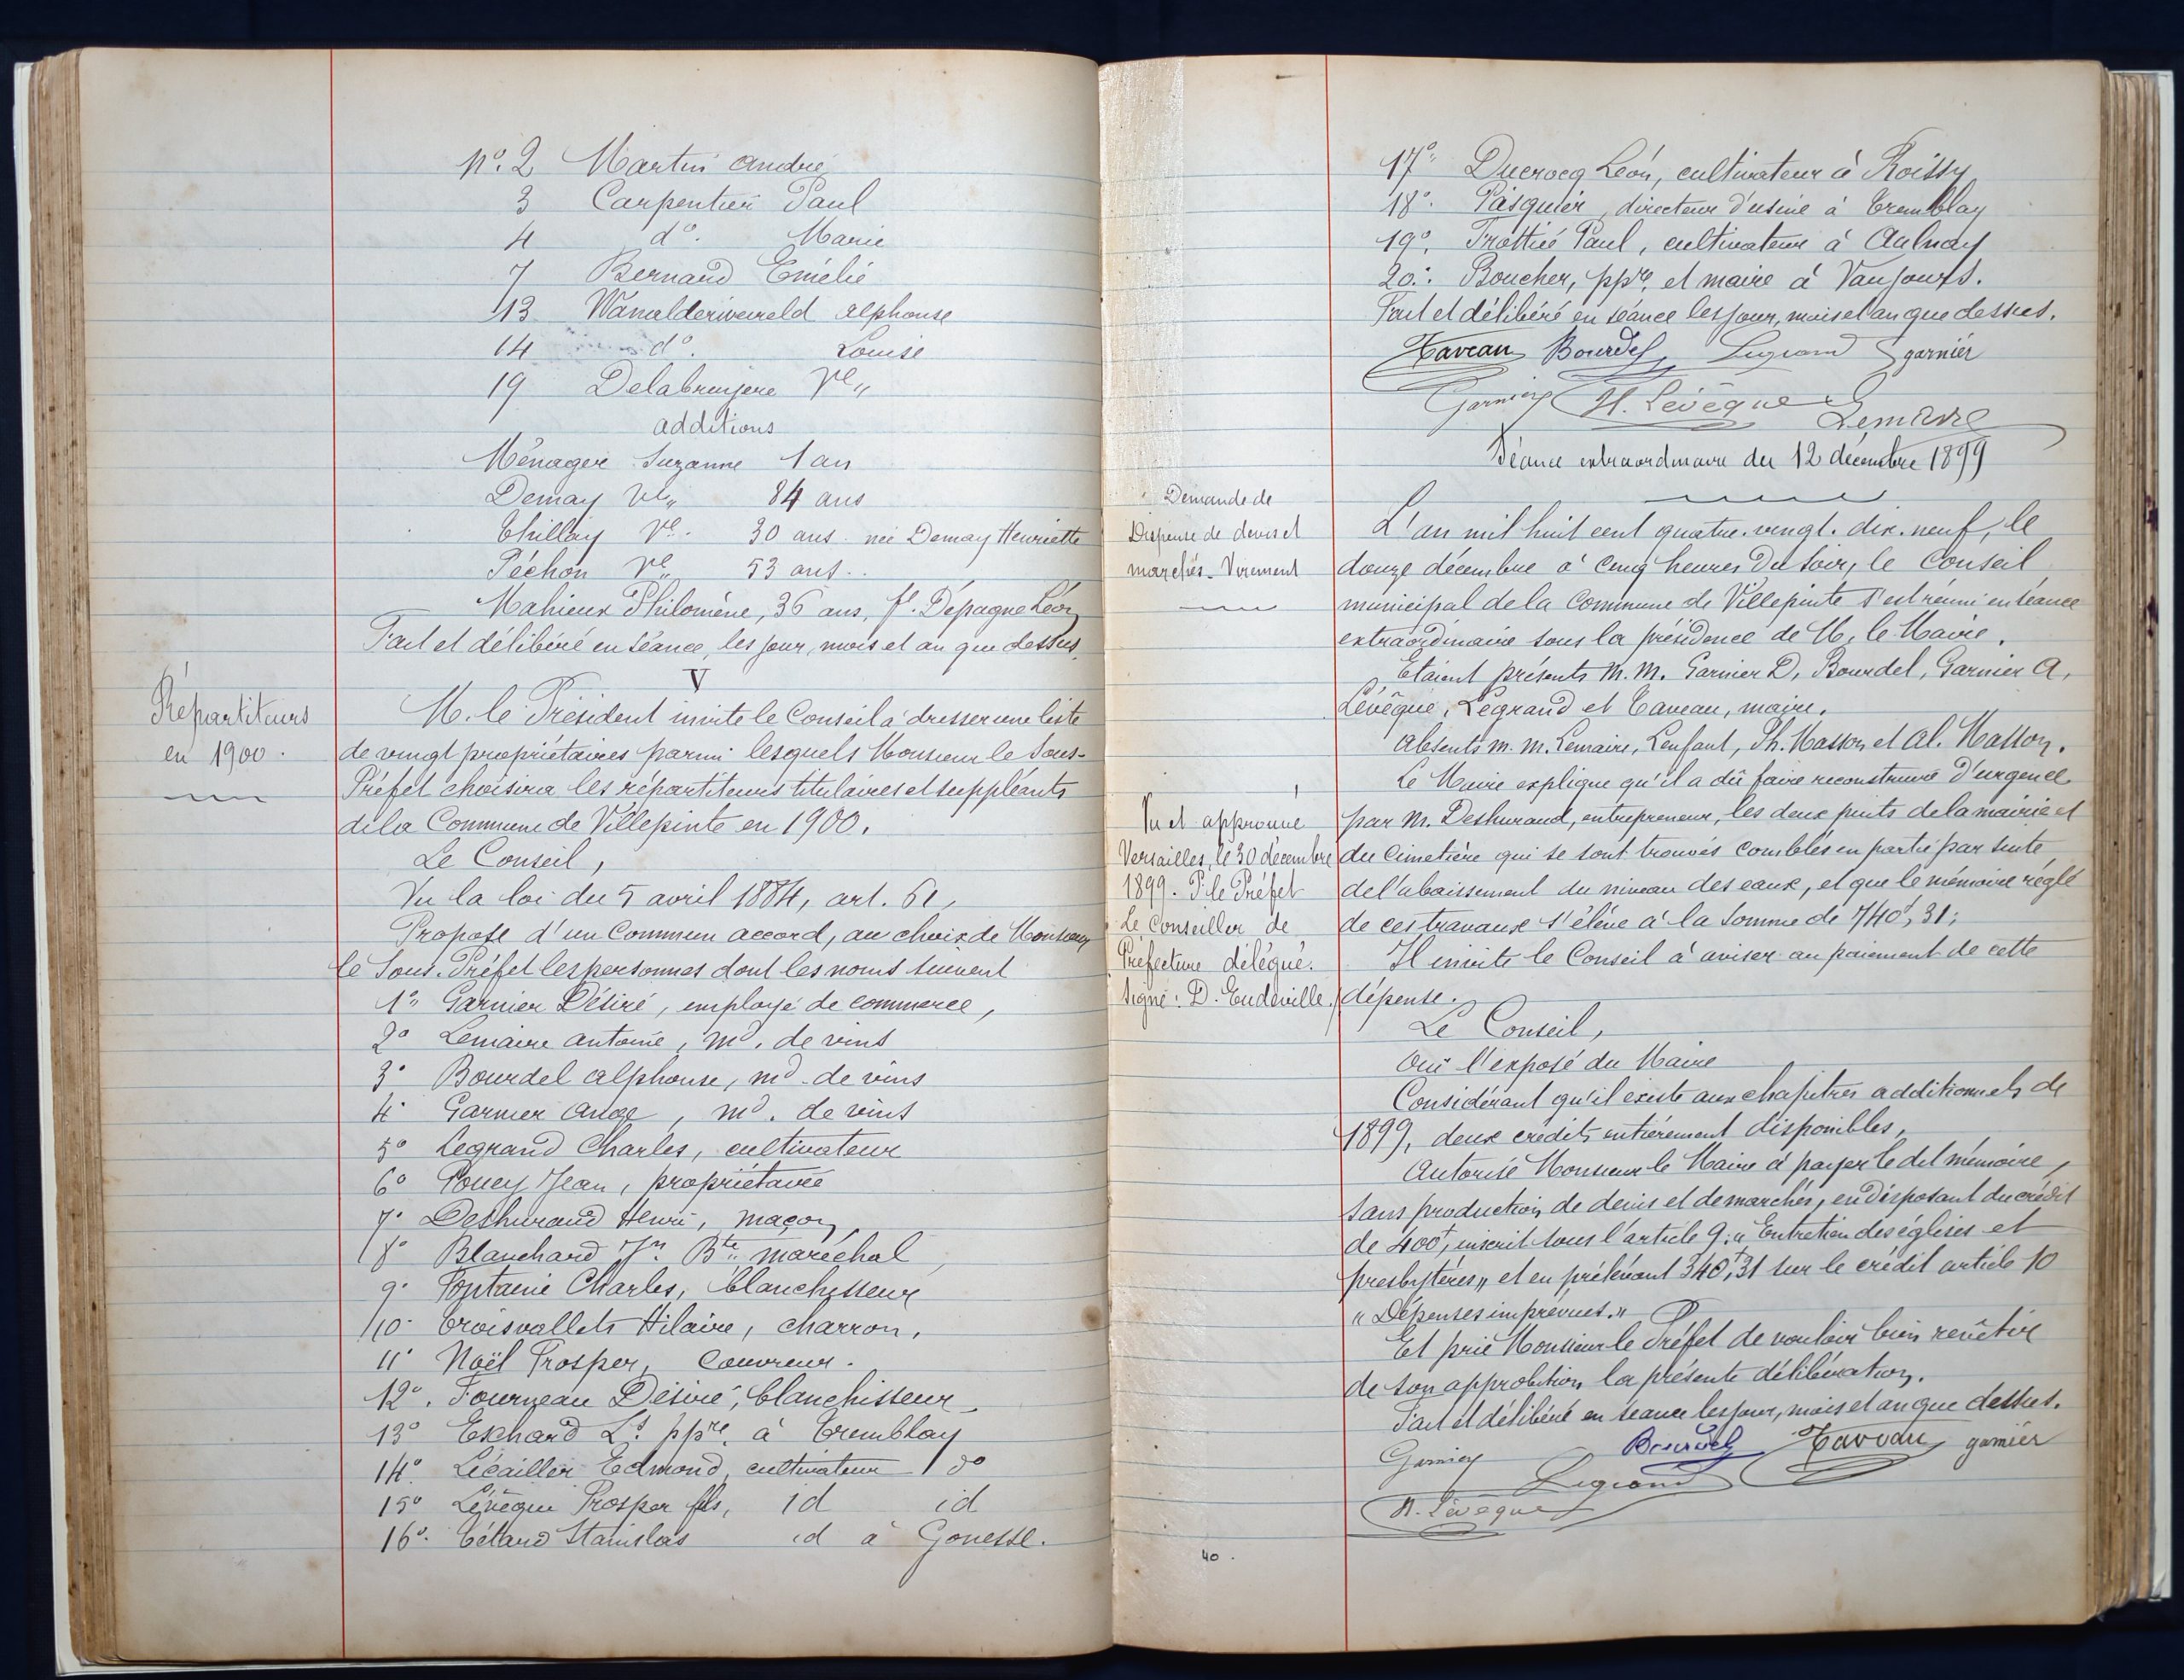 N°. 2 Martin André
3 Carpentier Paul
4 d°. Marie
7 Bernard Emélie
13 Wanalderweireld Alphonse
14 d°. Louise
19 Delabruyere Ve "
additions
Ménager Suzanne 1 an
Demay Ve " 84 ans
Thillay Ve. 30 ans née Demay Henriette
Péchon Ve " 53 ans.
Mahieux Philomène, 36 ans, f. Dépagne Léon
Fait et délibéré en séance, les jour, mois et an que dessus.
V
Répartiteurs
en 1900.
M. le Président invite le Conseil à dresser une liste
de vingt propriétaires parmi lesquels Monsieur le Sous-
Préfet choisira les répartiteurs titulaires et suppléants
de la Commune de Villepinte en 1900.
Le Conseil,
Vu la loi du 5 avril 1884, art. 61,
Propose d'un Commun accord, au choix de Monsieur
le Sous-Préfet les personnes dont les noms suivent
1° Garnier Désiré, employé de commerce,
2° Lemaire Antoine, md. de vins
3° Bourdel Alphonse, md. de vins
4° Garnier Ange, md. de vins
5° Legrand Charles, cultivateur
6° Poucy Jean, propriétaire
7° Deshuraud Henri, maçon,
8° Blanchard Jn. Bte. maréchal,
9° Fontaine Charles, blanchisseur
10° Troisvallets Hilaire, charron,
11° Noël Prosper, Couvreur.
12°. Fourneau Désiré, blanchisseur
13° Exchard Ls. ppre. à Tremblay
14° Lécaillier Edmond, cultivateur do
15° Lévêque Prosper fils, id id
16°. Tétard Stanislas id à Gonesse.
17° Ducrocq Léon, cultivateur à Roissy
18°. Pasquier, directeur d'usine à Tremblay
19°. Trottié Paul, cultivateur à Aulnay
20°. Boucher, ppre, et maire à Vaujours.
Fait et délibéré en séance les jour, mois et an que dessus.
Taveau Bourdel Legrand garnier
Garnier H. Lévêque Lemaire
Séance extraordinaire du 12 décembre 1899
Demande de
Dispense de devis et
marchés. Virement
L'an mil huit cent quatre-vingt-dix-neuf, le
douze décembre à Cinq heures du soir, le Conseil
municipal de la Commune de Villepinte s'est réuni en séance
extraordinaire sous la présidence de M. le Maire.
Etaient présents M. M. Garnier D, Bourdel, Garnier A,
Lévêque, Legrand et Taveau, maire.
Absents m. m. Lemaire, Lenfant, Th. Masson et Al. Masson.
Le Maire explique qu'il a dû faire reconstruire d'urgence
par M. Deshuraud, entrepreneur, les deux puits de la mairie et
du Cimetière qui se sont trouvés comblés en partie par suite
de l'abaissement du niveau des eaux, et que le mémoire réglé
de ces travaux s'élève à la somme de 740f,31;
Il invite le Conseil à aviser au paiement de cette
dépense.
Vu et approuvé
Versailles, le 30 décembre
1899. P. le Préfet
Le Conseiller de
Préfecture délégué.
Signé: D. Eudeville.
Le Conseil,
Ouï l'exposé du Maire
Considérant qu'il existe aux chapitres additionnels de
1899, deux crédits entièrement disponibles,
Autorise Monsieur le Maire à payer le dit mémoire,
sans production de devis et de marchés, en disposant du crédit
de 400f, inscrit sous l'article 9: " Entretien des églises et
presbytères " et en prélevant 340f,31 sur le crédit article 10
" Dépenses imprévues. "
Et prie Monsieur le Préfet de vouloir bien revêtir
de son approbtion la présente délibération.
Fait et délibéré en séance les jour, mois et an que dessus.
Garnier Bourdel Taveau garnier
Legrand
H. Lévêque
40.